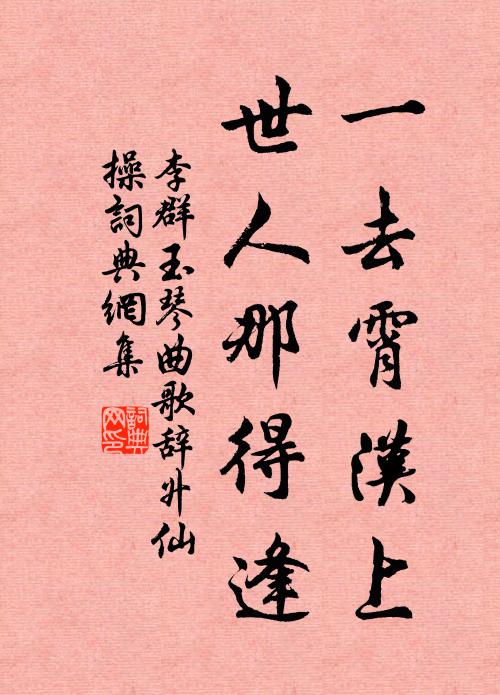 一去霄漢上
世人那得逢
李群玉琴曲歌辞升仙
操詞典網集
詞典
网印